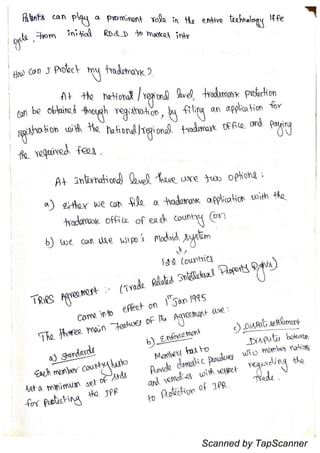 Patents can play a prominent role in the entire technology life
cycle, from initial RD&D to market intr
How can I Protect my trademark ?
At the national / regional level, trademark protection
can be obtained through registration, by filing an application for
registration with the national/regional trademark office and paying
the required fees.
At International level there are two options :
a) either we can file a trademark application with the
trademark office of each country (or)
b) we can use WIPO's Madrid system
countries
TRIPS Agreement :- (Trade Related Intellectual Property Rights)
Came into effect on 1st Jan 1995
The three main features of the Agreement are :
a) standards
Each member country has to
set a minimum set of stds
for Protecting the IPR
b) Enforcement
Members has to
Provide domestic Procedures
and remedies with respect
to Protection of IPR
c) Dispute settlement
Disputes between
WTO member nations
regarding the
Trade.
Scanned by TapScanner